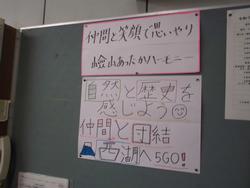 仲間と笑顔で思いやり
嶮山あったかハーモニー
自然と歴史を
感じよう
仲間と団結
西湖へ5GO!